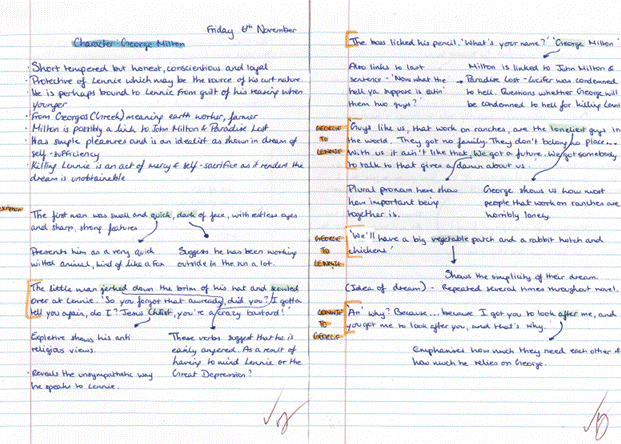 Friday 6th November
Character: George Milton
• Short tempered but honest, conscientious and loyal
• Protective of Lennie which may be the source of his curt nature.
• He is perhaps bound to Lennie from guilt of his teasing when
younger
• From Georgos (Greek) meaning earth worker, farmer
• Milton is possibly a link to John Milton & Paradise Lost
• Has simple pleasures and is an idealist as shown in dream of
self-sufficiency
• Killing Lennie is an act of mercy & self-sacrifice as it renders the
dream is unobtainable
The first man was small and quick, dark of face, with restless eyes
and sharp, strong features
Presents him as a very quick
witted animal, kind of like a fox
Suggests he has been working
outside in the sun a lot.
The little man jerked down the brim of his hat and scowled
over at Lennie. 'So you forgot that awready, did you? I gotta
tell you again, do I? Jesus Christ, you're a crazy bastard!'
Expletive shows his anti
religious views.
• Reveals the unsympathetic way
he speaks to Lennie.
These verbs suggest that he is
easily angered. As a result of
having to mind Lennie or the
Great Depression?
The boss licked his pencil. 'What's your name?' 'George Milton'
Also links to last
sentence - 'Now what the
hell ya suppose is eatin'
them two guys?'
Milton is linked to John Milton &
Paradise Lost - Lucifer was condemned
to hell. Questions whether George will
be condemned to hell for killing Lennie
GEORGE
TO
LENNIE
'Guys like us, that work on ranches, are the loneliest guys in
the world. They got no family. They don't belong no place...
With us it ain't like that. We got a future. We got somebody
to talk to that gives a damn about us.'
Plural pronoun here show
how important being
together is.
George shows us how most
people that work on ranches are
horribly lonely.
GEORGE
TO
LENNIE
'We'll have a big vegetable patch and a rabbit hutch and
chickens'
Shows the simplicity of their dream.
(Idea of dream) - Repeated several times throughout novel.
LENNIE
TO
GEORGE
'An' why? Because... because I got you to look after me, and
you got me to look after you, and that's why.
Emphasises how much they need each other &
how much he relies on George.